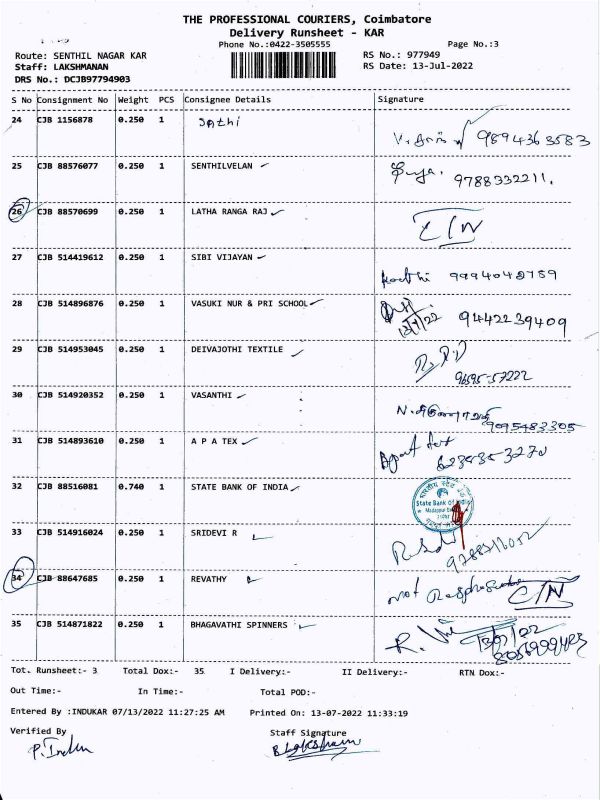 THE PROFESSIONAL COURIERS, Coimbatore
Delivery Runsheet - KAR
Phone No.:0422-3505555
Page No.:3
Route: SENTHIL NAGAR KAR
RS No.: 977949
Staff: LAKSHMANAN
RS Date: 13-Jul-2022
DRS No.: DCJB97794903
S No Consignment No Weight PCS Consignee Details Signature
24 CJB 1156878 0.250 1 Sathi
9894363583
25 CJB 88576077 0.250 1 SENTHILVELAN
9788332211.
26 CJB 88570699 0.250 1 LATHA RANGA RAJ
27 CJB 514419612 0.250 1 SIBI VIJAYAN
9994048759
28 CJB 514896876 0.250 1 VASUKI NUR & PRI SCHOOL
13/7/22 9442239409
29 CJB 514953045 0.250 1 DEIVAJOTHI TEXTILE
96595-57222
30 CJB 514920352 0.250 1 VASANTHI
9095483305
31 CJB 514893610 0.250 1 A P A TEX
32 CJB 88516081 0.740 1 STATE BANK OF INDIA
State Bank of India
33 CJB 514916024 0.250 1 SRIDEVI R
34 CJB 88647685 0.250 1 REVATHY
not
35 CJB 514871822 0.250 1 BHAGAVATHI SPINNERS
Tot. Runsheet:- 3 Total Dox:- 35 I Delivery:- II Delivery:- RTN Dox:-
Out Time:- In Time:- Total POD:-
Entered By :INDUKAR 07/13/2022 11:27:25 AM Printed On: 13-07-2022 11:33:19
Verified By Staff Signature
P. Indu